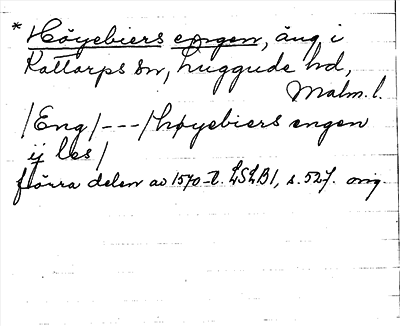 * Höyebiers engen, äng i
Kattarps sn, Luggude hd,
Malm. l.
/Eng/---/høyebiers engen
ij les/
förra delen av 1570-t. LSLB1, s. 527. orig.